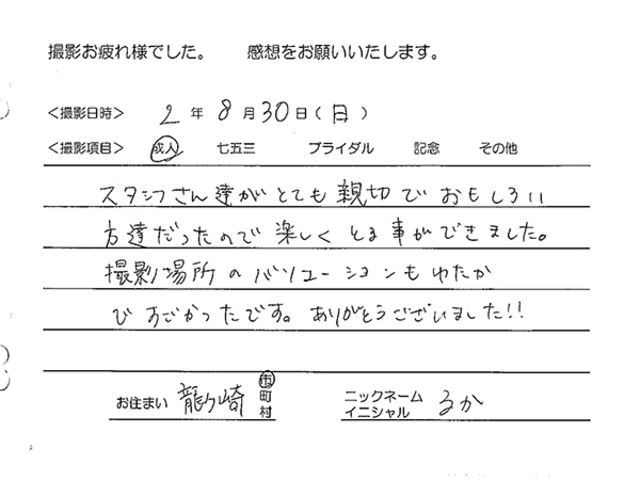 撮影お疲れ様でした。 感想をお願いいたします。
<撮影日時> 2年8月30日(日)
<撮影項目> 成人 七五三 ブライダル 記念 その他
スタッフさん達がとても親切でおもしろい
方達だったので楽しくとる事ができました。
撮影場所のバリエーションもゆたか
ですごかったです。ありがとうございました!!
お住まい 龍ヶ崎 市町村 ニックネーム イニシャル るか